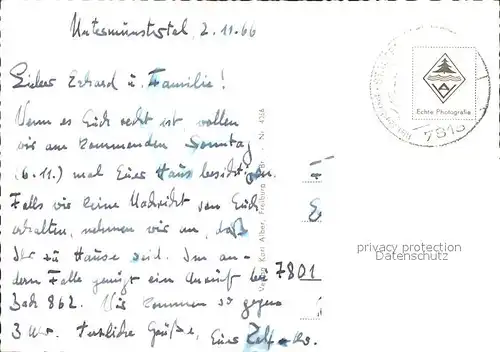 Untermünstertal, 2.11.66
Lieber Erhard u. Familie!
Wenn es Euch recht ist wollen
wir am kommenden Sonntag
(6.11.) mal Euer Haus besichtigen.
Falls wir keine Nachricht von Euch
erhalten, nehmen wir an, daß
Ihr zu Hause seid. Im an-
dern Falle genügt ein Anruf bei 7801
862. Wir kommen so gegen
3 Uhr. Herzliche Grüße, Eure
Verlag Karl Alber, Freiburg
Nr. 4266
Echte Photografie
7816
privacy protection
Datenschutz